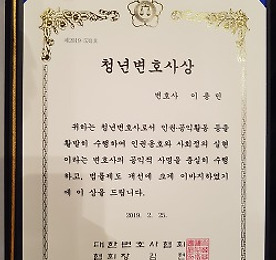 청년변호사상
변호사 이 종 민
위하는 청년변호사로서 인권·공익활동 등을
활발히 수행하여 인권옹호와 사회정의 실현
이라는 변호사의 공익적 사명을 충실히 수행
하고, 법률제도 개선에 크게 이바지하였기
에 이 상을 드립니다.
2019. 2. 25.
대한변호사협회
협회장 김 현